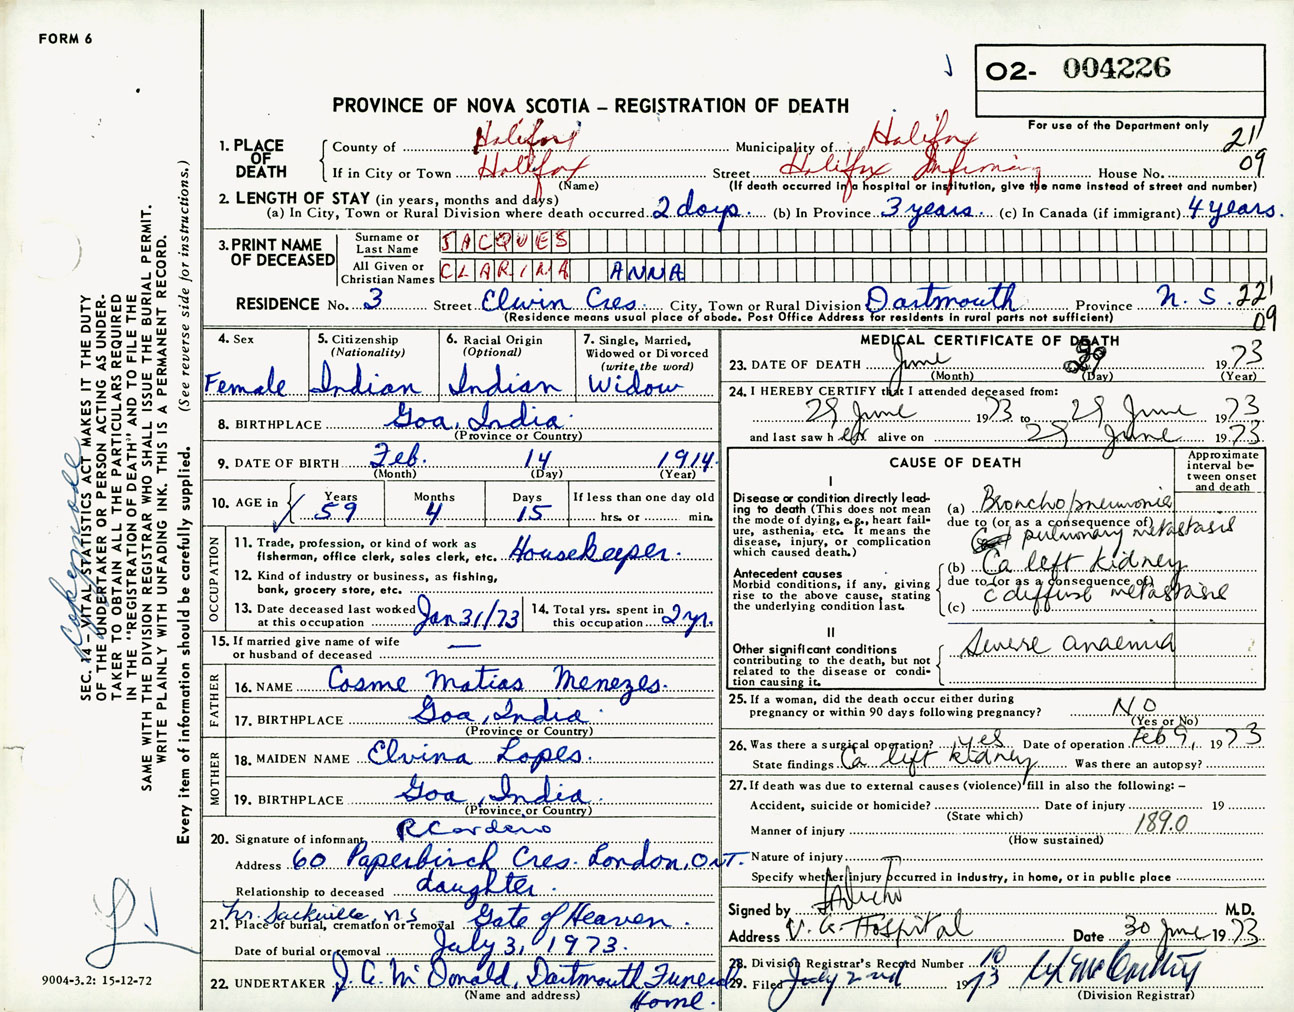 FORM 6
O2- 004226
PROVINCE OF NOVA SCOTIA – REGISTRATION OF DEATH
For use of the Department only
21
09
1. PLACE OF DEATH
County of Halifax Municipality of Halifax
If in City or Town Halifax Street Halifax Infirmary House No.
(Name) (If death occurred in a hospital or institution, give the name instead of street and number)
2. LENGTH OF STAY (in years, months and days)
(a) In City, Town or Rural Division where death occurred 2 days. (b) In Province 3 years (c) In Canada (if immigrant) 4 years.
3. PRINT NAME OF DECEASED
Surname or Last Name JACQUES
All Given or Christian Names CLARINA ANNA
RESIDENCE No. 3 Street Elwin Cres. City, Town or Rural Division Dartmouth Province N.S. 22
09
(Residence means usual place of abode. Post Office Address for residents in rural parts not sufficient)
4. Sex Female
5. Citizenship (Nationality) Indian
6. Racial Origin (Optional) Indian
7. Single, Married, Widowed or Divorced (write the word) Widow
8. BIRTHPLACE Goa, India.
(Province or Country)
9. DATE OF BIRTH Feb. 14 1914
(Month) (Day) (Year)
10. AGE in Years 59 Months 4 Days 15 If less than one day old hrs. or min.
OCCUPATION
11. Trade, profession, or kind of work as fisherman, office clerk, sales clerk, etc. Housekeeper.
12. Kind of industry or business, as fishing, bank, grocery store, etc.
13. Date deceased last worked at this occupation Jan 31/73
14. Total yrs. spent in this occupation 2 yr.
15. If married give name of wife or husband of deceased —
FATHER
16. NAME Cosme Matias Menezes.
17. BIRTHPLACE Goa, India
(Province or Country)
MOTHER
18. MAIDEN NAME Elvina Lopes.
19. BIRTHPLACE Goa, India
(Province or Country)
20. Signature of informant R Cordeiro
Address 60 Paperbirch Cres. London, ONT.
Relationship to deceased daughter.
Nr. Sackville, N.S.
21. Place of burial, cremation or removal Gate of Heaven.
Date of burial or removal July 3, 1973.
22. UNDERTAKER J. A. McDonald, Dartmouth Funeral Home.
(Name and address)
MEDICAL CERTIFICATE OF DEATH
23. DATE OF DEATH June 29 1973
(Month) (Day) (Year)
24. I HEREBY CERTIFY that I attended deceased from:
29 June 1973 to 29 June 1973
and last saw her alive on 29 June 1973
CAUSE OF DEATH
Approximate interval between onset and death
I
Disease or condition directly leading to death (This does not mean the mode of dying, e.g., heart failure, asthenia, etc. It means the disease, injury, or complication which caused death.)
(a) Bronchopneumonia
due to (or as a consequence of)
pulmonary metastasis
Antecedent causes
Morbid conditions, if any, giving rise to the above cause, stating the underlying condition last.
(b) Ca left kidney
due to (or as a consequence of)
(c) c diffuse metastasis
II
Other significant conditions contributing to the death, but not related to the disease or condition causing it.
Severe anaemia
25. If a woman, did the death occur either during pregnancy or within 90 days following pregnancy? NO
(Yes or No)
26. Was there a surgical operation? yes Date of operation Feb 9, 1973
State findings Ca left kidney Was there an autopsy?
27. If death was due to external causes (violence) fill in also the following: –
Accident, suicide or homicide? Date of injury 19
(State which)
Manner of injury 189.0
(How sustained)
Nature of injury
Specify whether injury occurred in industry, in home, or in public place
Signed by M.D.
Address V.G. Hospital Date 30 June 1973
28. Division Registrar's Record Number 10
29. Filed July 2nd 1973
(Division Registrar)
SEC. 14 – VITAL STATISTICS ACT MAKES IT THE DUTY
OF THE UNDERTAKER OR PERSON ACTING AS UNDERTAKER TO OBTAIN ALL THE PARTICULARS REQUIRED
IN THE "REGISTRATION OF DEATH" AND TO FILE THE
SAME WITH THE DIVISION REGISTRAR WHO SHALL ISSUE THE BURIAL PERMIT.
WRITE PLAINLY WITH UNFADING INK. THIS IS A PERMANENT RECORD.
Every item of information should be carefully supplied. (See reverse side for instructions.)
9004-3.2: 15-12-72